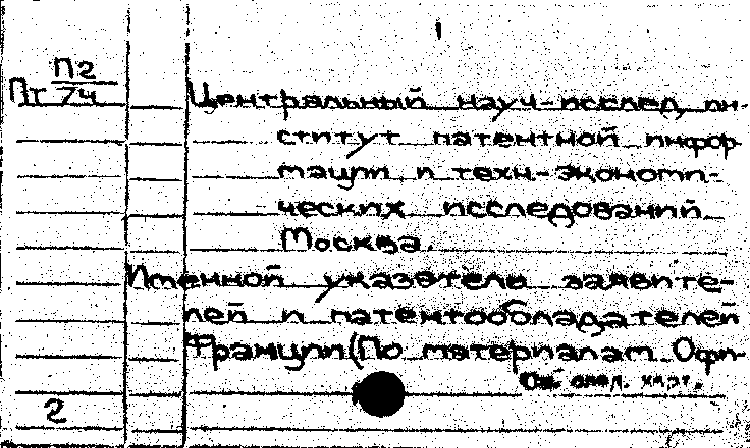 1
П2
Пт 74
Центральный науч-исслед, ин-
ститут патентной инфор-
мации и техн-экономи-
ческих исследований
Москва.
Именной указатель заявите-
лей и патентообладателей
Франции (По материалам Офи-
См. след. карт.
2